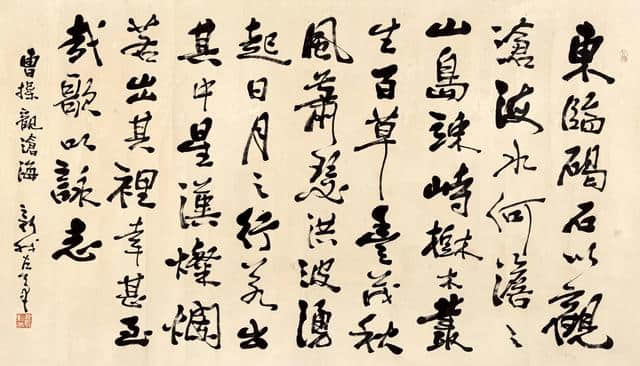 東臨碣石以觀
滄海水何澹々
山島竦峙樹木叢
生百草豐茂秋
風蕭瑟洪波湧
起日月之行若出
其中星漢燦爛
若出其裡幸甚至
哉歌以詠志
曹操觀滄海